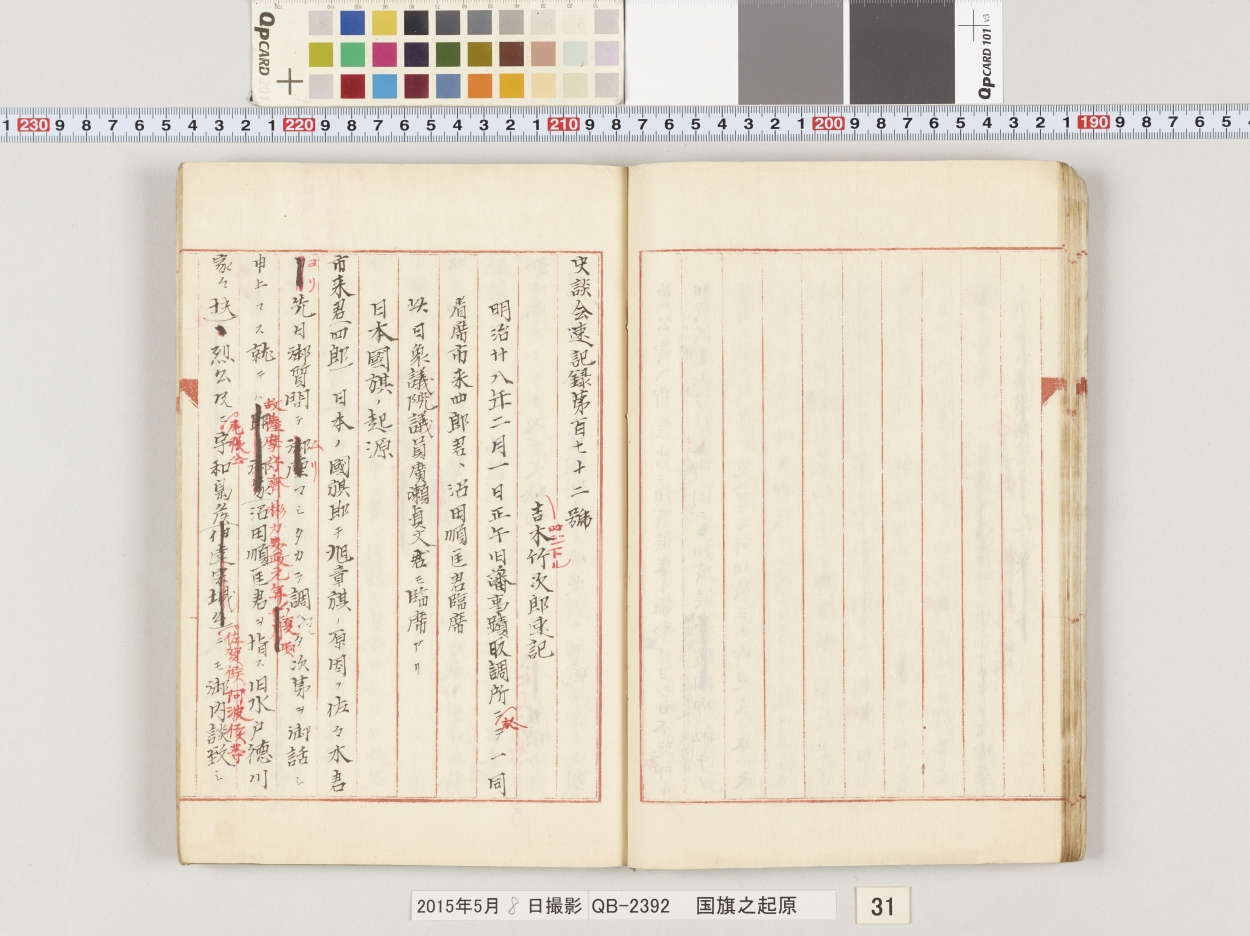 QPCARD 201
QPCARD 101 v3
1 230 9 8 7 6 5 4 3 2 1 220 9 8 7 6 5 4 3 2 1 210 9 8 7 6 5 4 3 2 1 200 9 8 7 6 5 4 3 2 1 190 9 8 7 6 5
史談会速記録第百七十二號
吉木竹次郎速記
四字下ル
明治廿八年二月一日正午旧藩事蹟取調所ニテ一同
着席市来四郎君、沼田順匡君臨席
此日衆議院議員廣瀬貞文君モ臨席アリ
日本國旗ノ起源
市来君(四郎) 日本ノ國旗即チ旭章旗ノ原因ヲ佐々木君
ヨリ先日御質問デ マシタカラ調 タ次第ヲ御話シ
申上マス就テハ 沼田順匡君ヲ指ス旧水戸徳川
故薩摩守齊彬カ 元年
家々 烈公 宇和島 伊達宗城 ニモ御内談致シ
尾張公
佐賀候阿波候等
2015年5月 8 日撮影 QB-2392 国旗之起原
31